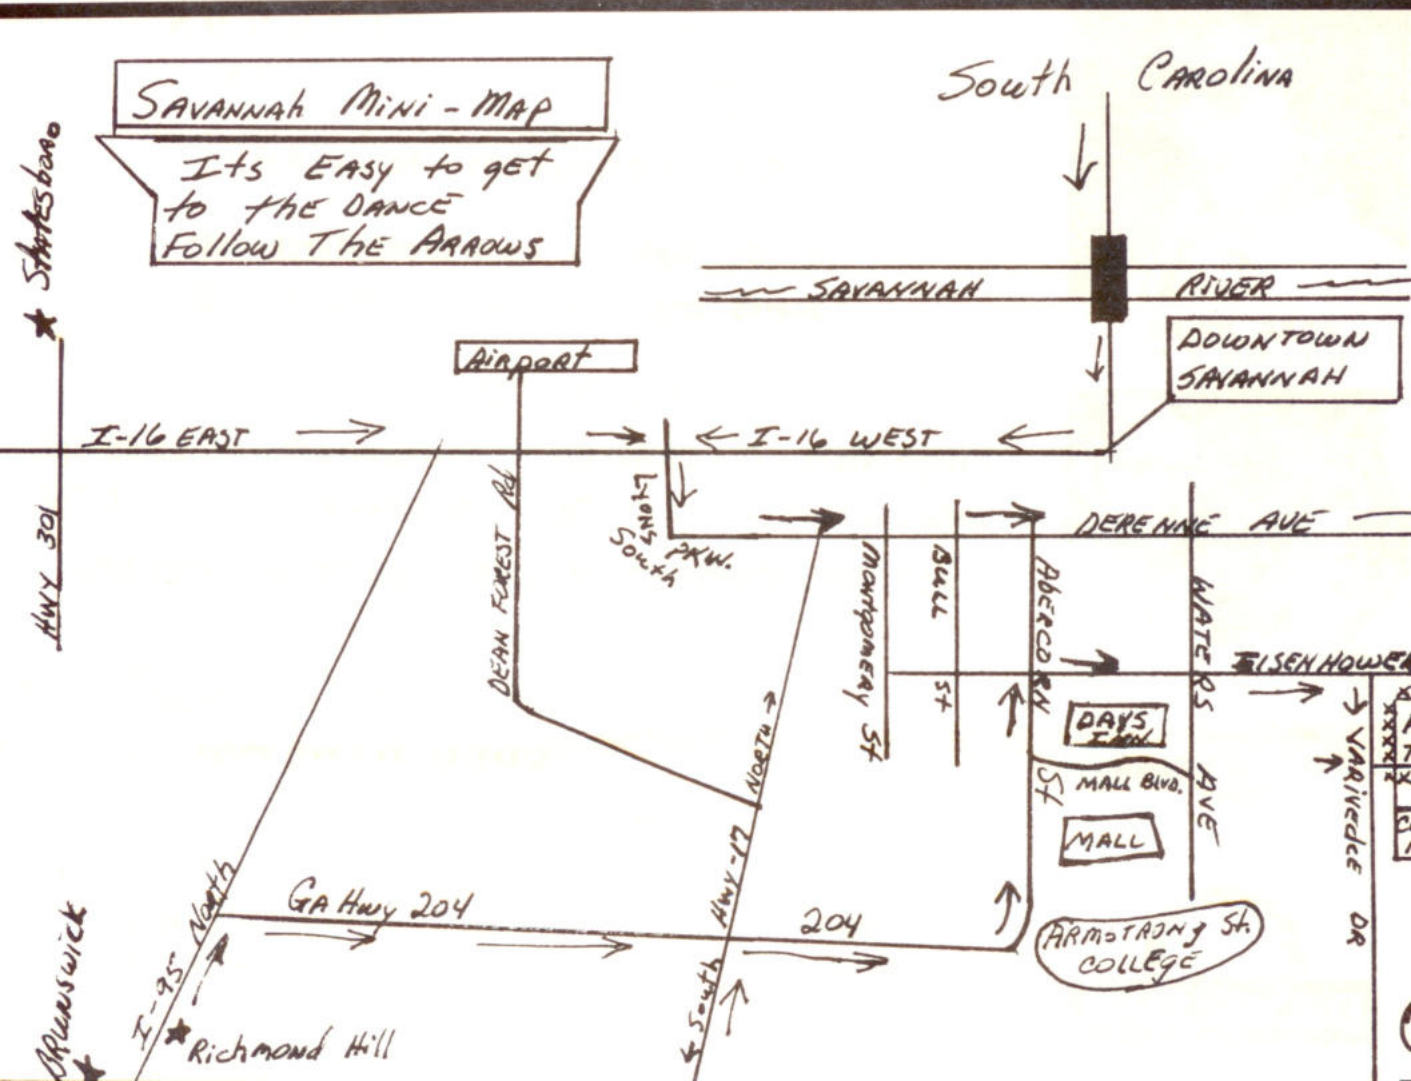 SAVANNAh MiNi-MAP
Its EASY to gET
to thE DANCE
Follow ThE ARROWS
South CAROliNA
StAtESboRo
SAVANNAH RIVER
DOWNTOWN
SAVANNAH
AiRpoRt
I-16 EAST
I-16 WEST
HWY 301
DEAN FOREST Rd
LYNOS
South PKW.
DERENNE AVE
MONTGOMERY St
BULL St
ABERCORN St
WATERS AVE
EISENHOWER
DAYS
INN
MALL BLVD.
MALL
VARiVEdEE DR
NORTH
HWY-17
South
GA Hwy 204
204
ARMSTRONg St.
COLLEGE
I-95 NoRth
RichmoNd Hill
BRUNSWicK